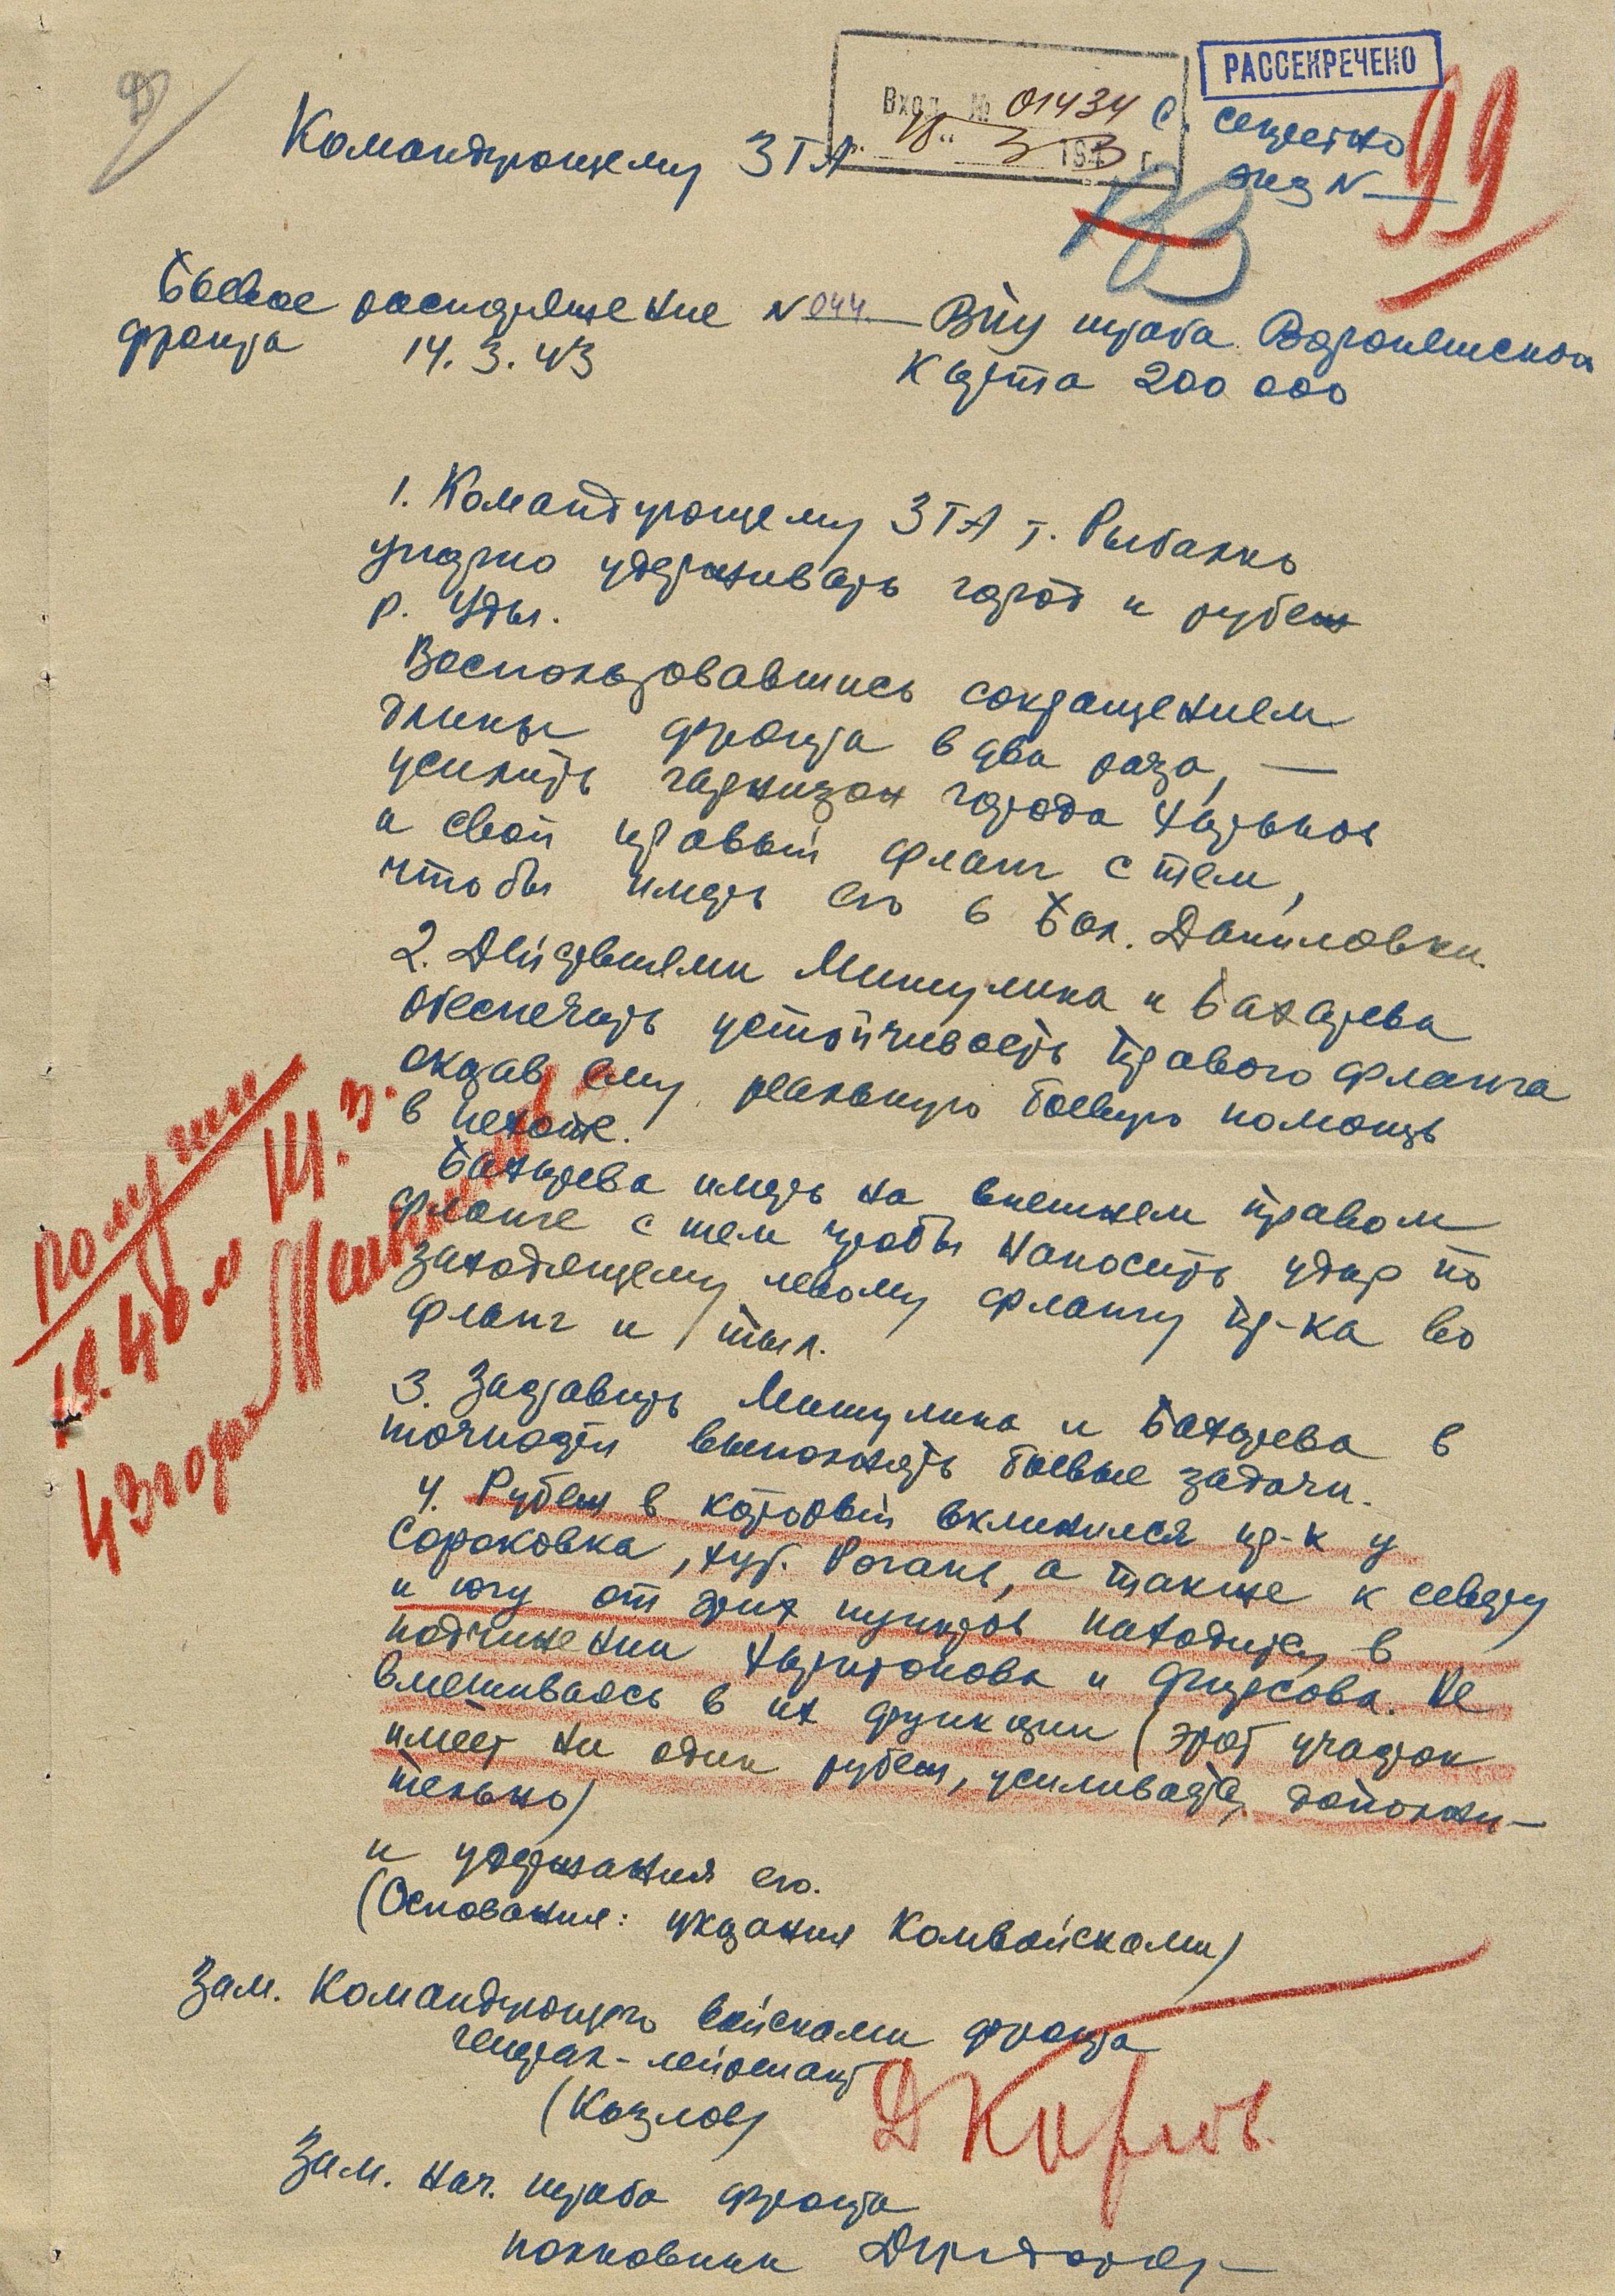 РАССЕКРЕЧЕНО
Вход. № 01434
18 3 1943 г.
С. секретно
экз N
99
Командующему 3 ТА
Боевое распоряжение N 044 ВПУ штаба Воронежского
фронта 14.3.43
Карта 200 000
1. Командующему 3 ТА т. Рыбалко
упорно удерживать город и рубеж
р. Уды.
Воспользовавшись сокращением
длины фронта в два раза, —
усилить гарнизон города Харьков
и свой правый фланг с тем,
чтобы иметь его в Бол. Даниловки.
2. Действиями Мишулина и Бахарева
обеспечить устойчивость правого фланга
оказав ему реальную боевую помощь
в пехоте.
Бахарева иметь на внешнем правом
фланге с тем чтобы наносить удар по
заходящему левому флангу пр-ка во
фланг и тыл.
3. Заставить Мишулина и Бахарева в
точности выполнять боевые задачи.
4. Рубеж в который вклинился пр-к у
Сороковка, хут. Рогань, а также к северу
и югу от этих пунктов находится в
подчинении Харитонова и Фирсова. Не
вмешиваясь в их функции (этот участок
имеет ни один рубеж, усиливается дополни-
тельно)
и удержания его.
(Основание: указания Комвойсками)
Зам. Командующего войсками фронта
генерал-лейтенант
(Козлов)
Д Козлов.
Зам. нач. штаба фронта
полковник
Получен
19.40 м 14.3.
43 года